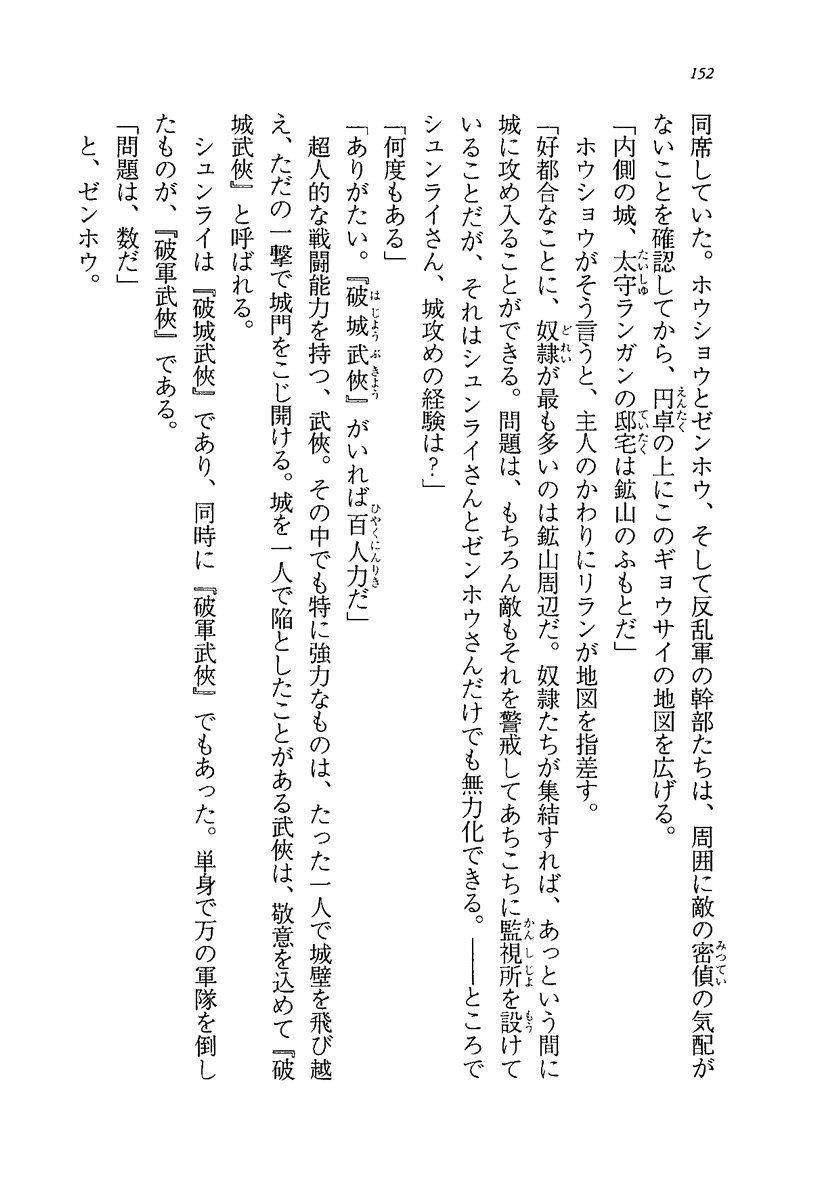 152
同席していた。ホウショウとゼンホウ、そして反乱軍の幹部たちは、周囲に敵の密偵の気配が
ないことを確認してから、円卓の上にこのギョウサイの地図を広げる。
「内側の城、太守ランガンの邸宅は鉱山のふもとだ」
ホウショウがそう言うと、主人のかわりにリランが地図を指差す。
「好都合なことに、奴隷が最も多いのは鉱山周辺だ。奴隷たちが集結すれば、あっという間に
城に攻め入ることができる。問題は、もちろん敵もそれを警戒してあちこちに監視所を設けて
いることだが、それはシュンライさんとゼンホウさんだけでも無力化できる。――ところで
シュンライさん、城攻めの経験は？」
「何度もある」
「ありがたい。『破城武俠』がいれば百人力だ」
超人的な戦闘能力を持つ、武俠。その中でも特に強力なものは、たった一人で城壁を飛び越
え、ただの一撃で城門をこじ開ける。城を一人で陥としたことがある武俠は、敬意を込めて『破
城武俠』と呼ばれる。
シュンライは『破城武俠』であり、同時に『破軍武俠』でもあった。単身で万の軍隊を倒し
たものが、『破軍武俠』である。
「問題は、数だ」
と、ゼンホウ。